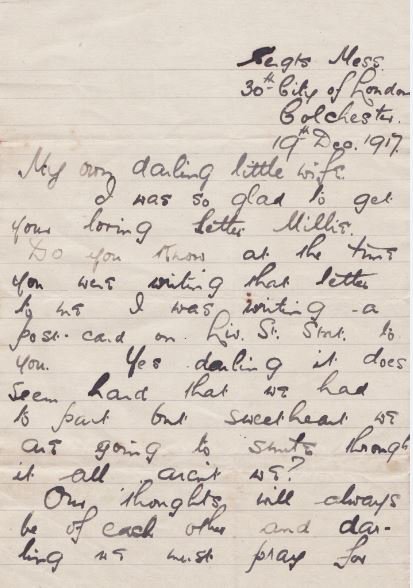 Sergts Mess.
30th City of London
Colchester.
19th Dec. 1917.
My own darling little wife.
I was so glad to get
your loving letter Millie.
Do you know at the time
you were writing that letter
to me I was writing a
post-card on Liv. St. Stat. to
you. Yes darling it does
seem hard that we had
to part but sweetheart we
are going to smile through
it all arn't we?
Our thoughts will always
be of each other and dar-
ling we must pray for